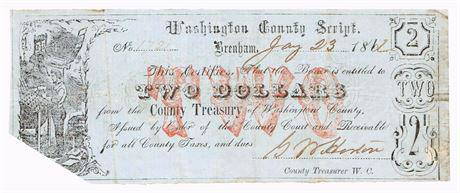 Washington County Script.
No. Brenham, Jay 23 186
2
This Certifies, That the Bearer is entitled to
TWO DOLLARS
TWO
TWO
from the County Treasury of Washington County.
Issued by Order of the County Court and Receivable
for all County Taxes, and dues
2
County Treasurer W. C.